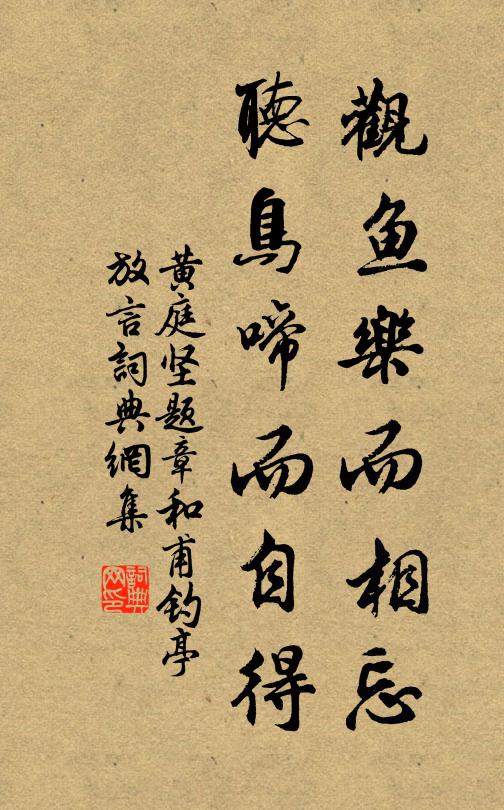 觀鱼樂而相忘
聽鳥啼而自得
黄庭坚題章和甫钓亭
放言詞典網集
詞典網印